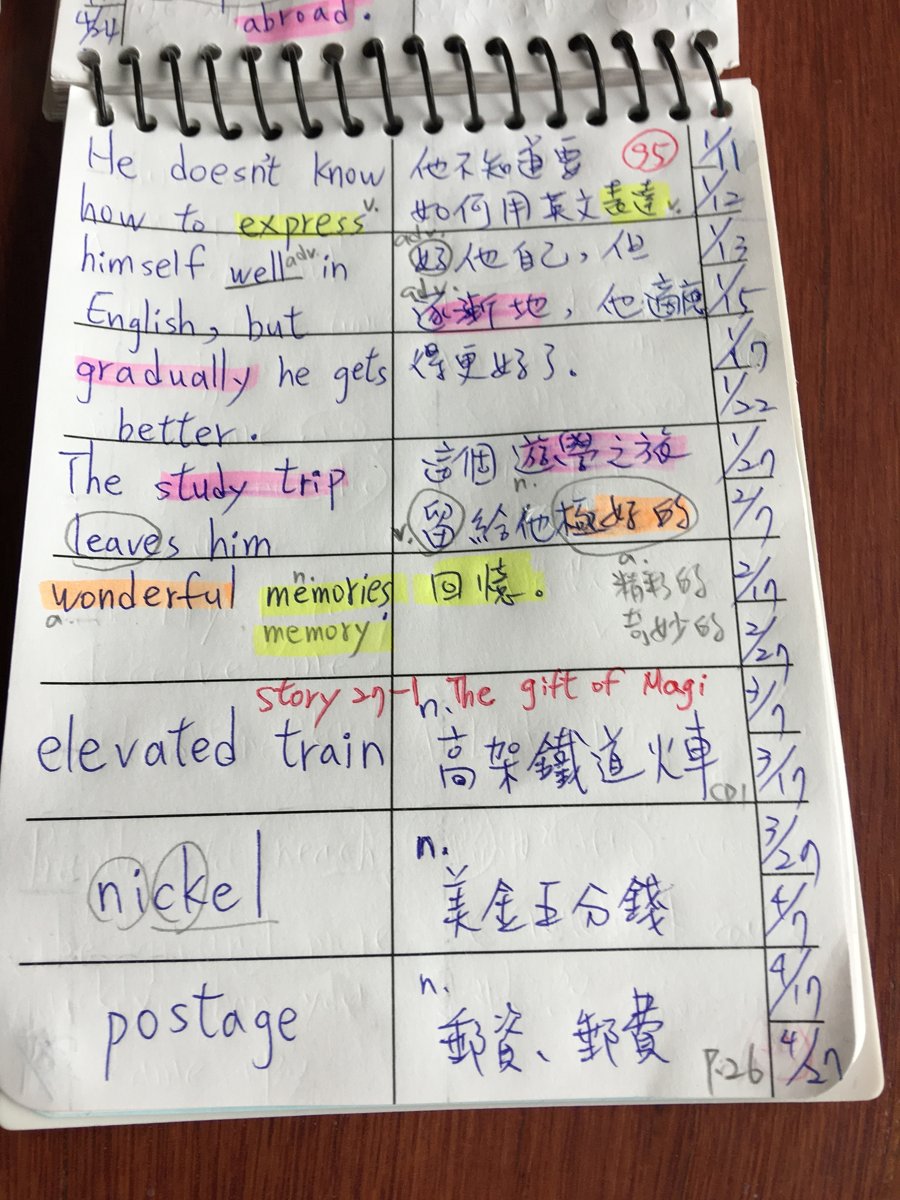 4/24
abroad.
He doesn't know
how to express v.
himself well adv. in
English, but
gradually he gets
better.
The study trip
leaves him
wonderful memories
a. n.
memory
他不知道要
如何用英文表達 v.
adv.
好他自己，但
adv.
逐漸地，他適應
得更好了。
這個遊學之旅
n.
v. 留給他極好的
回憶。
a.
精彩的
奇妙的
95
1/11
1/12
1/13
1/15
1/17
1/22
1/27
2/7
2/17
2/27
3/7
3/17
3/27
4/7
4/17
4/27
story 27-1 The gift of Magi
elevated train
n.
高架鐵道火車
CD1
nickel
n.
美金五分錢
postage
n.
郵資、郵費
P.26